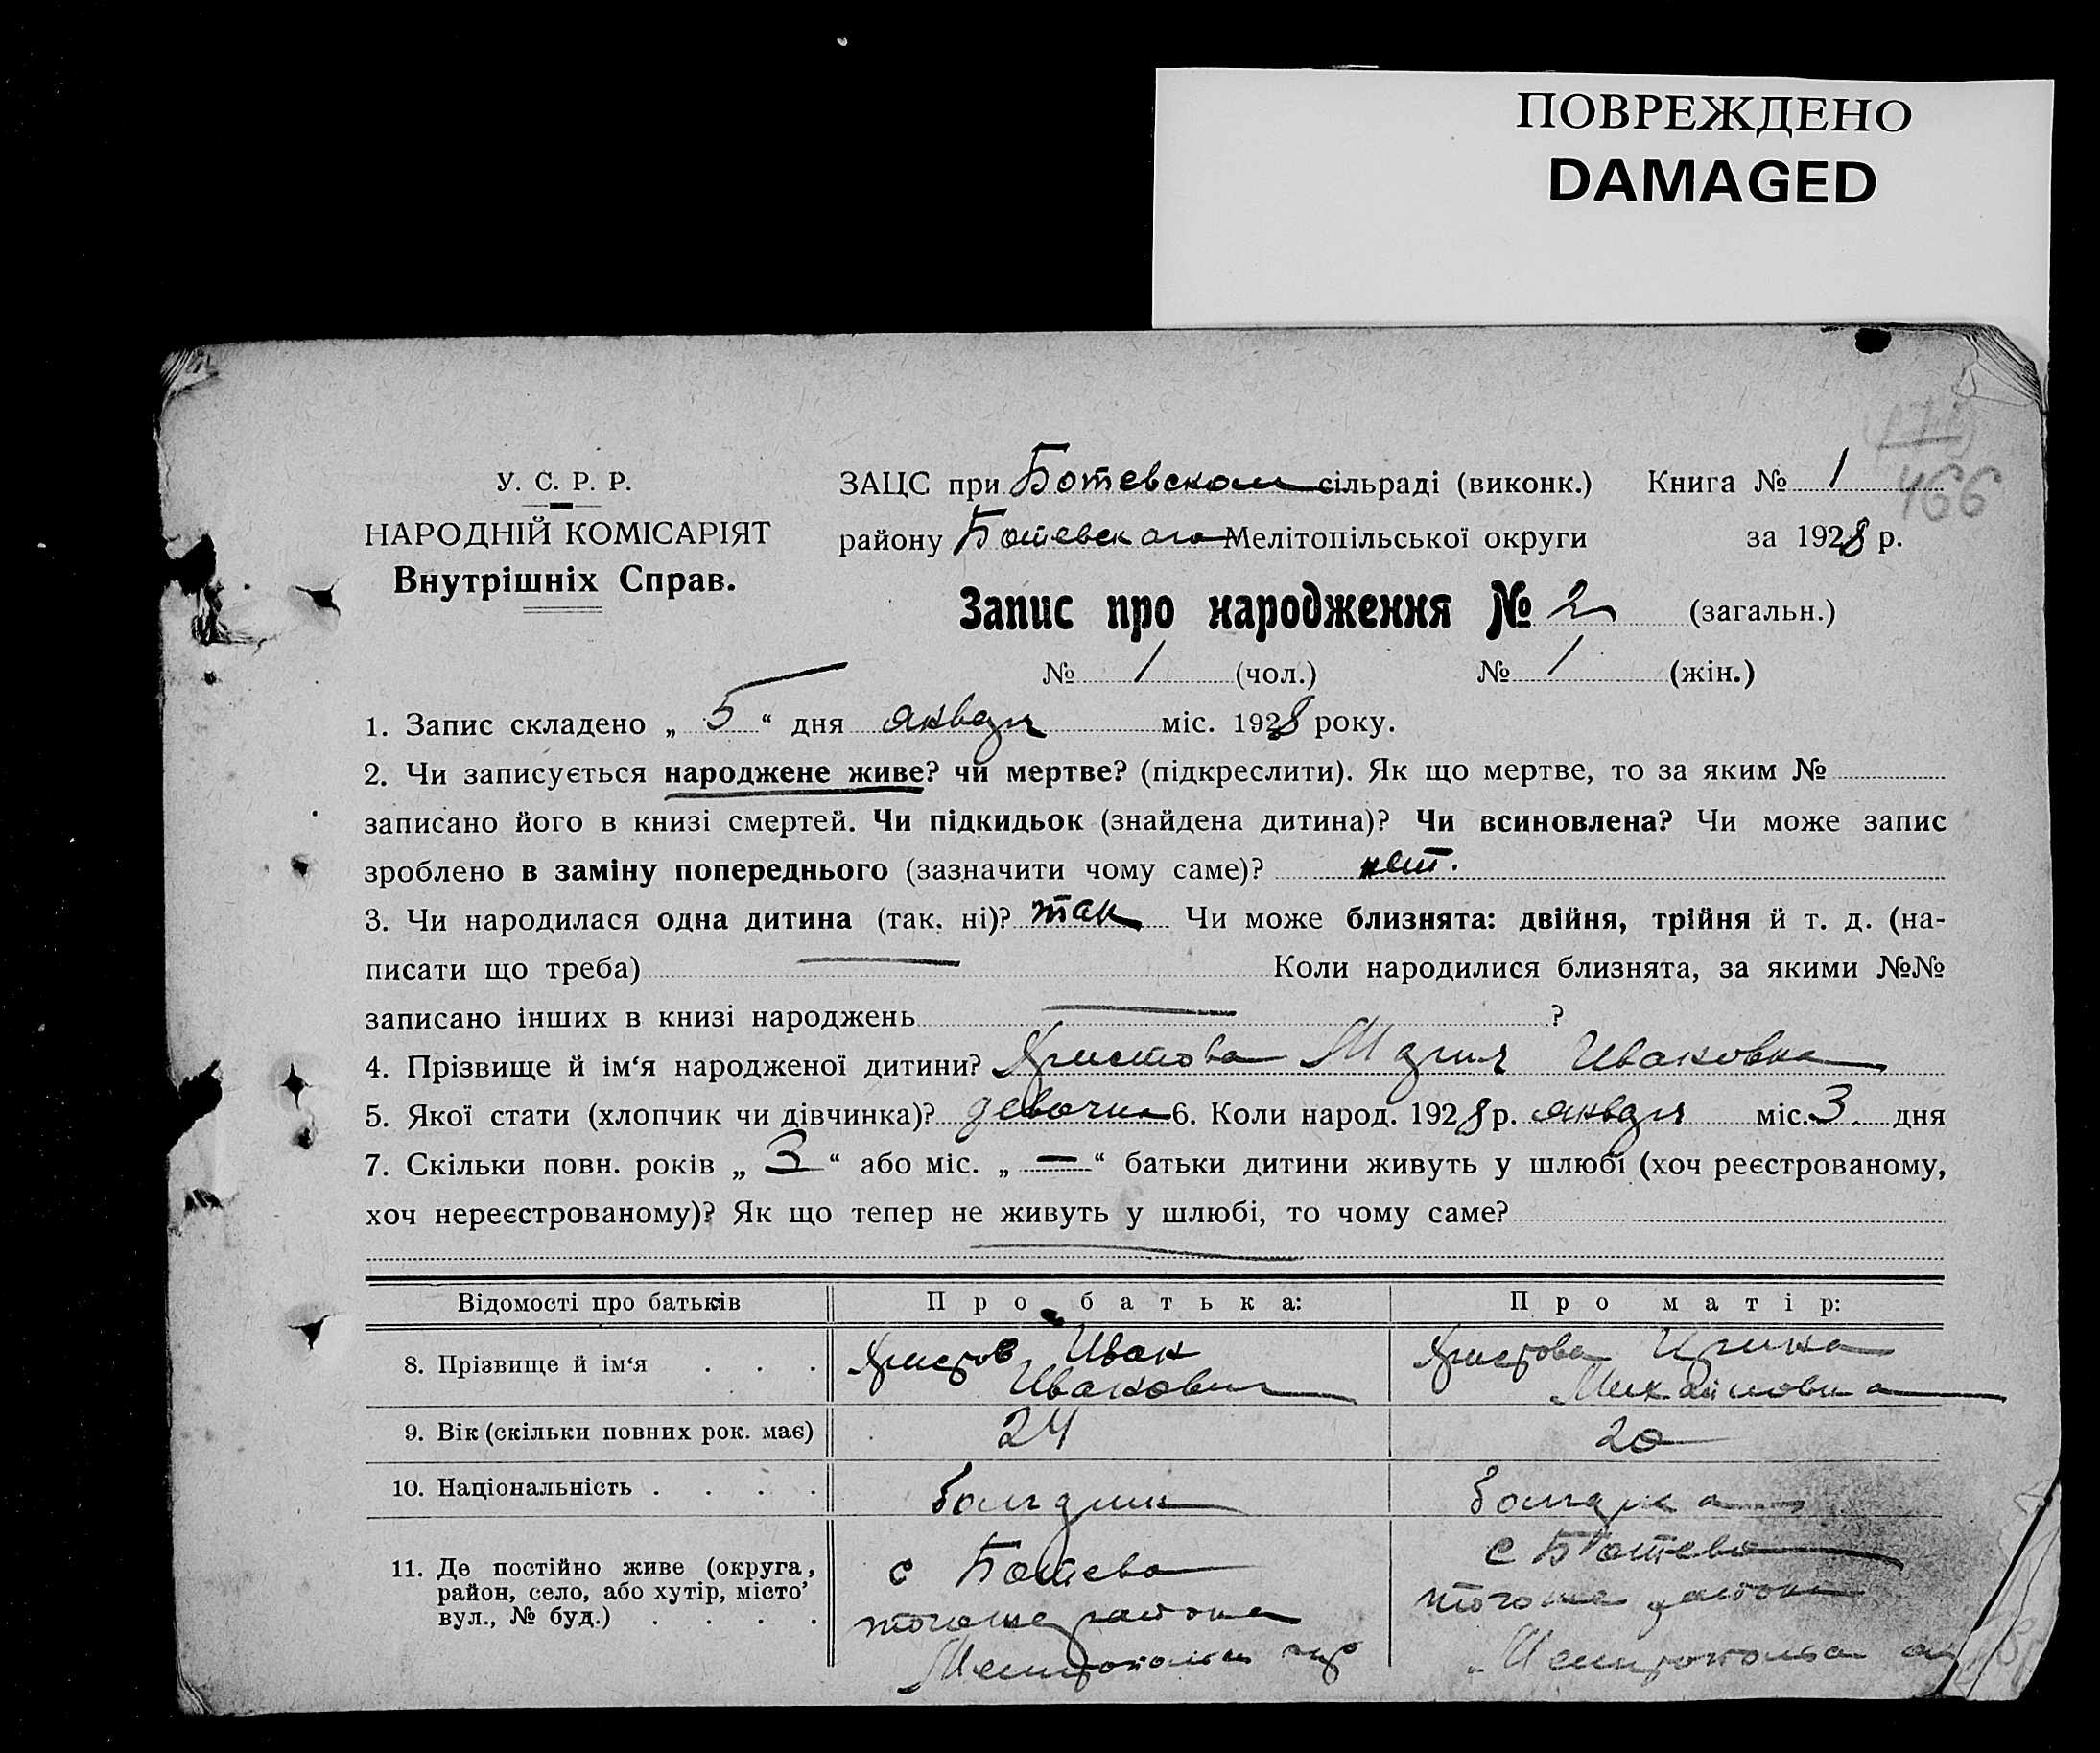 ПОВРЕЖДЕНО
DAMAGED
466
У. С. Р. Р.
НАРОДНІЙ КОМІСАРІЯТ
Внутрішніх Справ.
ЗАЦС при Ботевском сільраді (виконк.) Книга № 1
району Ботевского Мелітопільської округи за 1928 р.
Запис про народження № 2 (загальн.)
№ 1 (чол.) № 1 (жін.)
1. Запис складено „ 5 “ дня января міс. 1928 року.
2. Чи записується народжене живе? чи мертве? (підкреслити). Як що мертве, то за яким №
записано його в книзі смертей. Чи підкидьок (знайдена дитина)? Чи всиновлена? Чи може запис
зроблено в заміну попереднього (зазначити чому саме)? нет.
3. Чи народилася одна дитина (так. ні)? так Чи може близнята: двійня, трійня й т. д. (на-
писати що треба) — Коли народилися близнята, за якими №№
записано інших в книзі народжень — ?
4. Прізвище й ім‘я народженої дитини? Христова Мария Ивановна
5. Якої стати (хлопчик чи дівчинка)? девочка 6. Коли народ. 1928 р. января міс. 3 дня
7. Скільки повн. років „ 3 “ або міс. „ — “ батьки дитини живуть у шлюбі (хоч реєстрованому,
хоч нереєстрованому)? Як що тепер не живуть у шлюбі, то чому саме?
—
Відомості про батьків Про батька: Про матір:
8. Прізвище й ім‘я . . . Христов Иван Христова Ирина
Иванович Михайловна
9. Вік (скільки повних рок. має) 24 20
10. Національність . . . . болгарин болгарка
11. Де постійно живе (округа, с Ботево с Ботево
район, село, або хутір, місто’ тогоже района тогоже района
вул., № буд.) . . . . Мелитопольск окр Мелитопольск